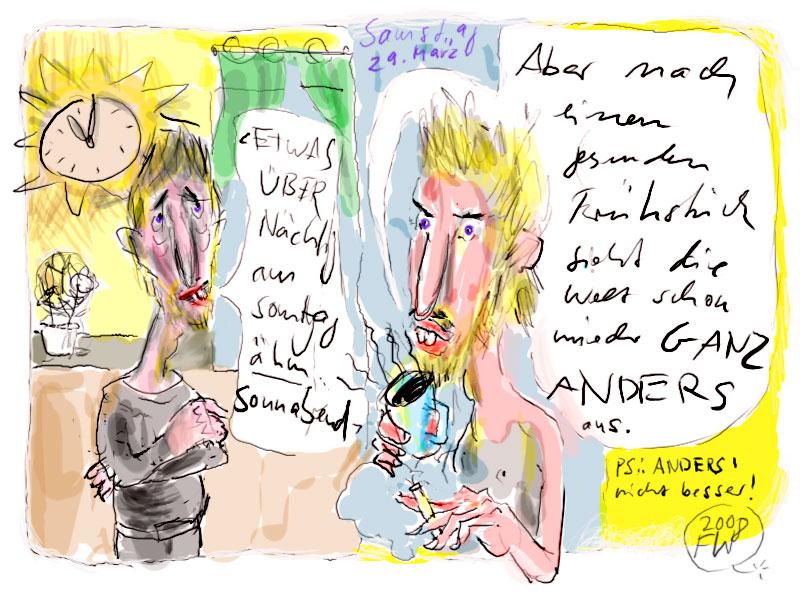 Samstag
29. März
ETWAS
ÜBER
Nächtig
am
sonntag
ähm
sonnabend
Aber nach
einem
gesunden
Frühstück
sieht die
Welt schon
wieder GANZ
ANDERS
aus.
PS: ANDERS!
nicht besser!
2008
FW